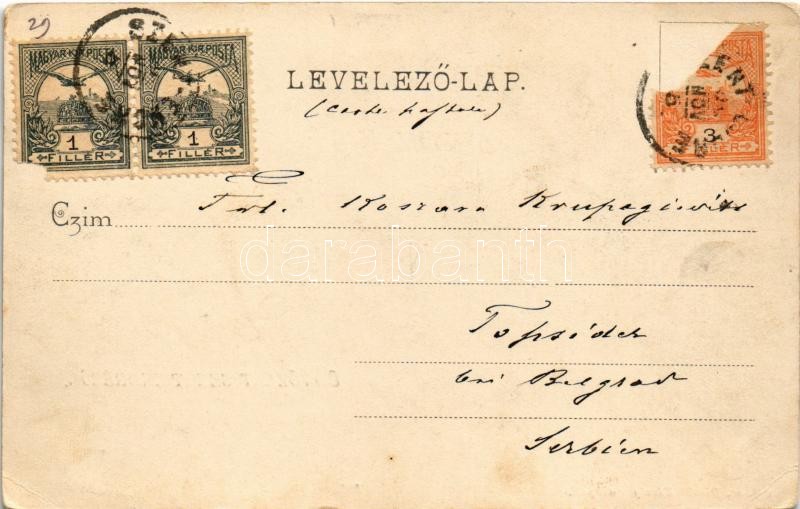 29
MAGYAR KIR. POSTA MAGYAR KIR. POSTA
1 1
FILLÉR FILLÉR
POSTA
3
LEVELEZŐ-LAP.
Czim Frl. Kossara
Topsider
bei Belgrad
Serbien
darabanth